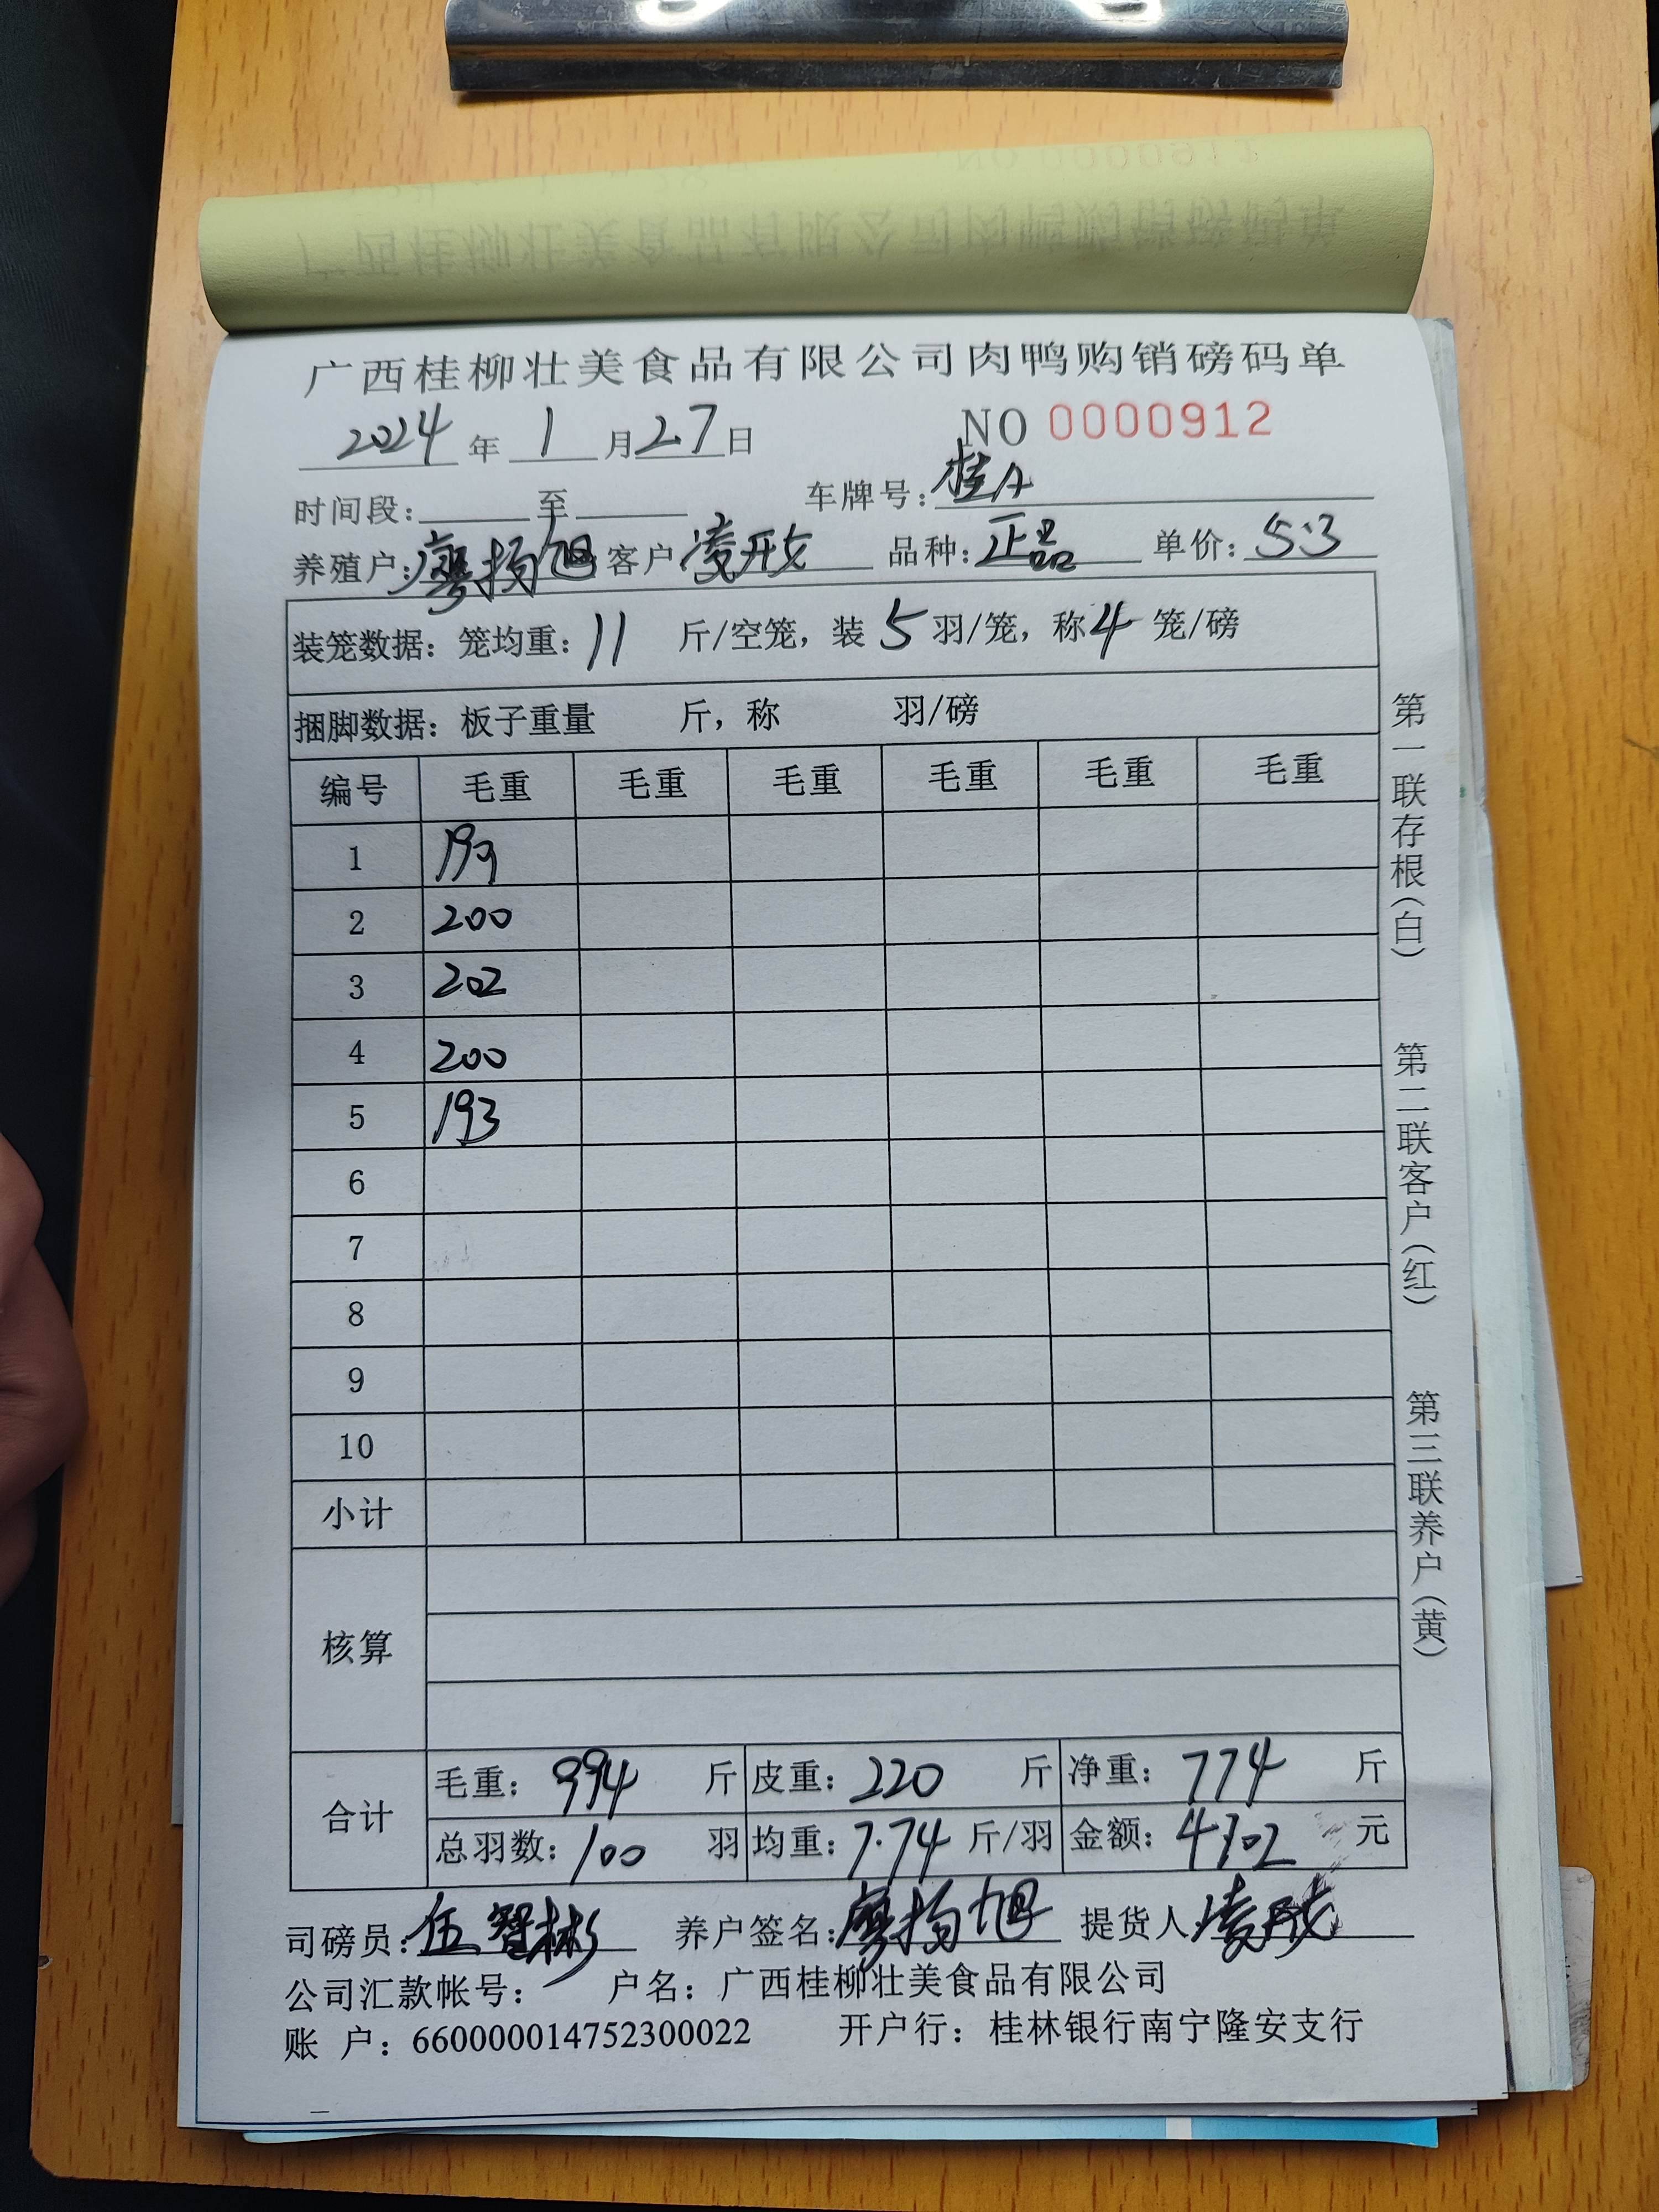 广西桂柳壮美食品有限公司肉鸭购销磅码单
2024年 1 月27日 NO 0000912
时间段: 至 车牌号: 桂A
养殖户: 廖扬旭 客户 凌 品种: 正品 单价: 5.3
装笼数据: 笼均重: 11 斤/空笼, 装 5 羽/笼, 称4 笼/磅
捆脚数据: 板子重量 斤, 称 羽/磅
编号 毛重 毛重 毛重 毛重 毛重 毛重
1 199
2 200
3 202
4 200
5 193
6
7
8
9
10
小计
核算
合计 毛重: 994 斤 皮重: 220 斤 净重: 774 斤
总羽数: 100 羽 均重: 7.74 斤/羽 金额: 4102 元
司磅员: 伍智彬 养户签名: 廖扬旭 提货人: 凌
公司汇款帐号: 户名: 广西桂柳壮美食品有限公司
账 户: 660000014752300022 开户行: 桂林银行南宁隆安支行
第一联存根(白)
第二联客户(红)
第三联养户(黄)